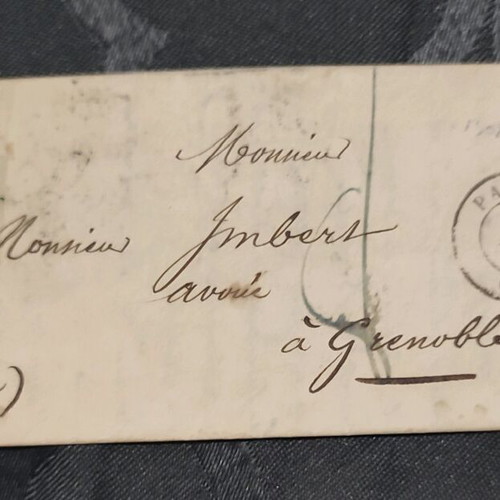 Monsieur
Monsieur Imbert
avoué
à Grenoble
PA